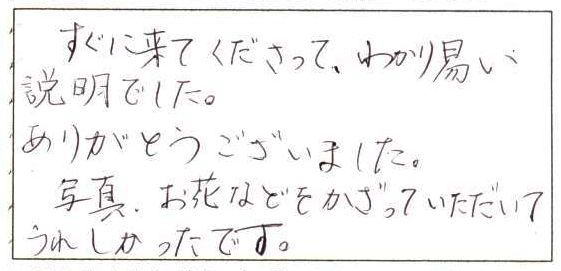 すぐに来てくださって、わかり易い
説明でした。
ありがとうございました。
写真、お花などをかざっていただいて
うれしかったです。